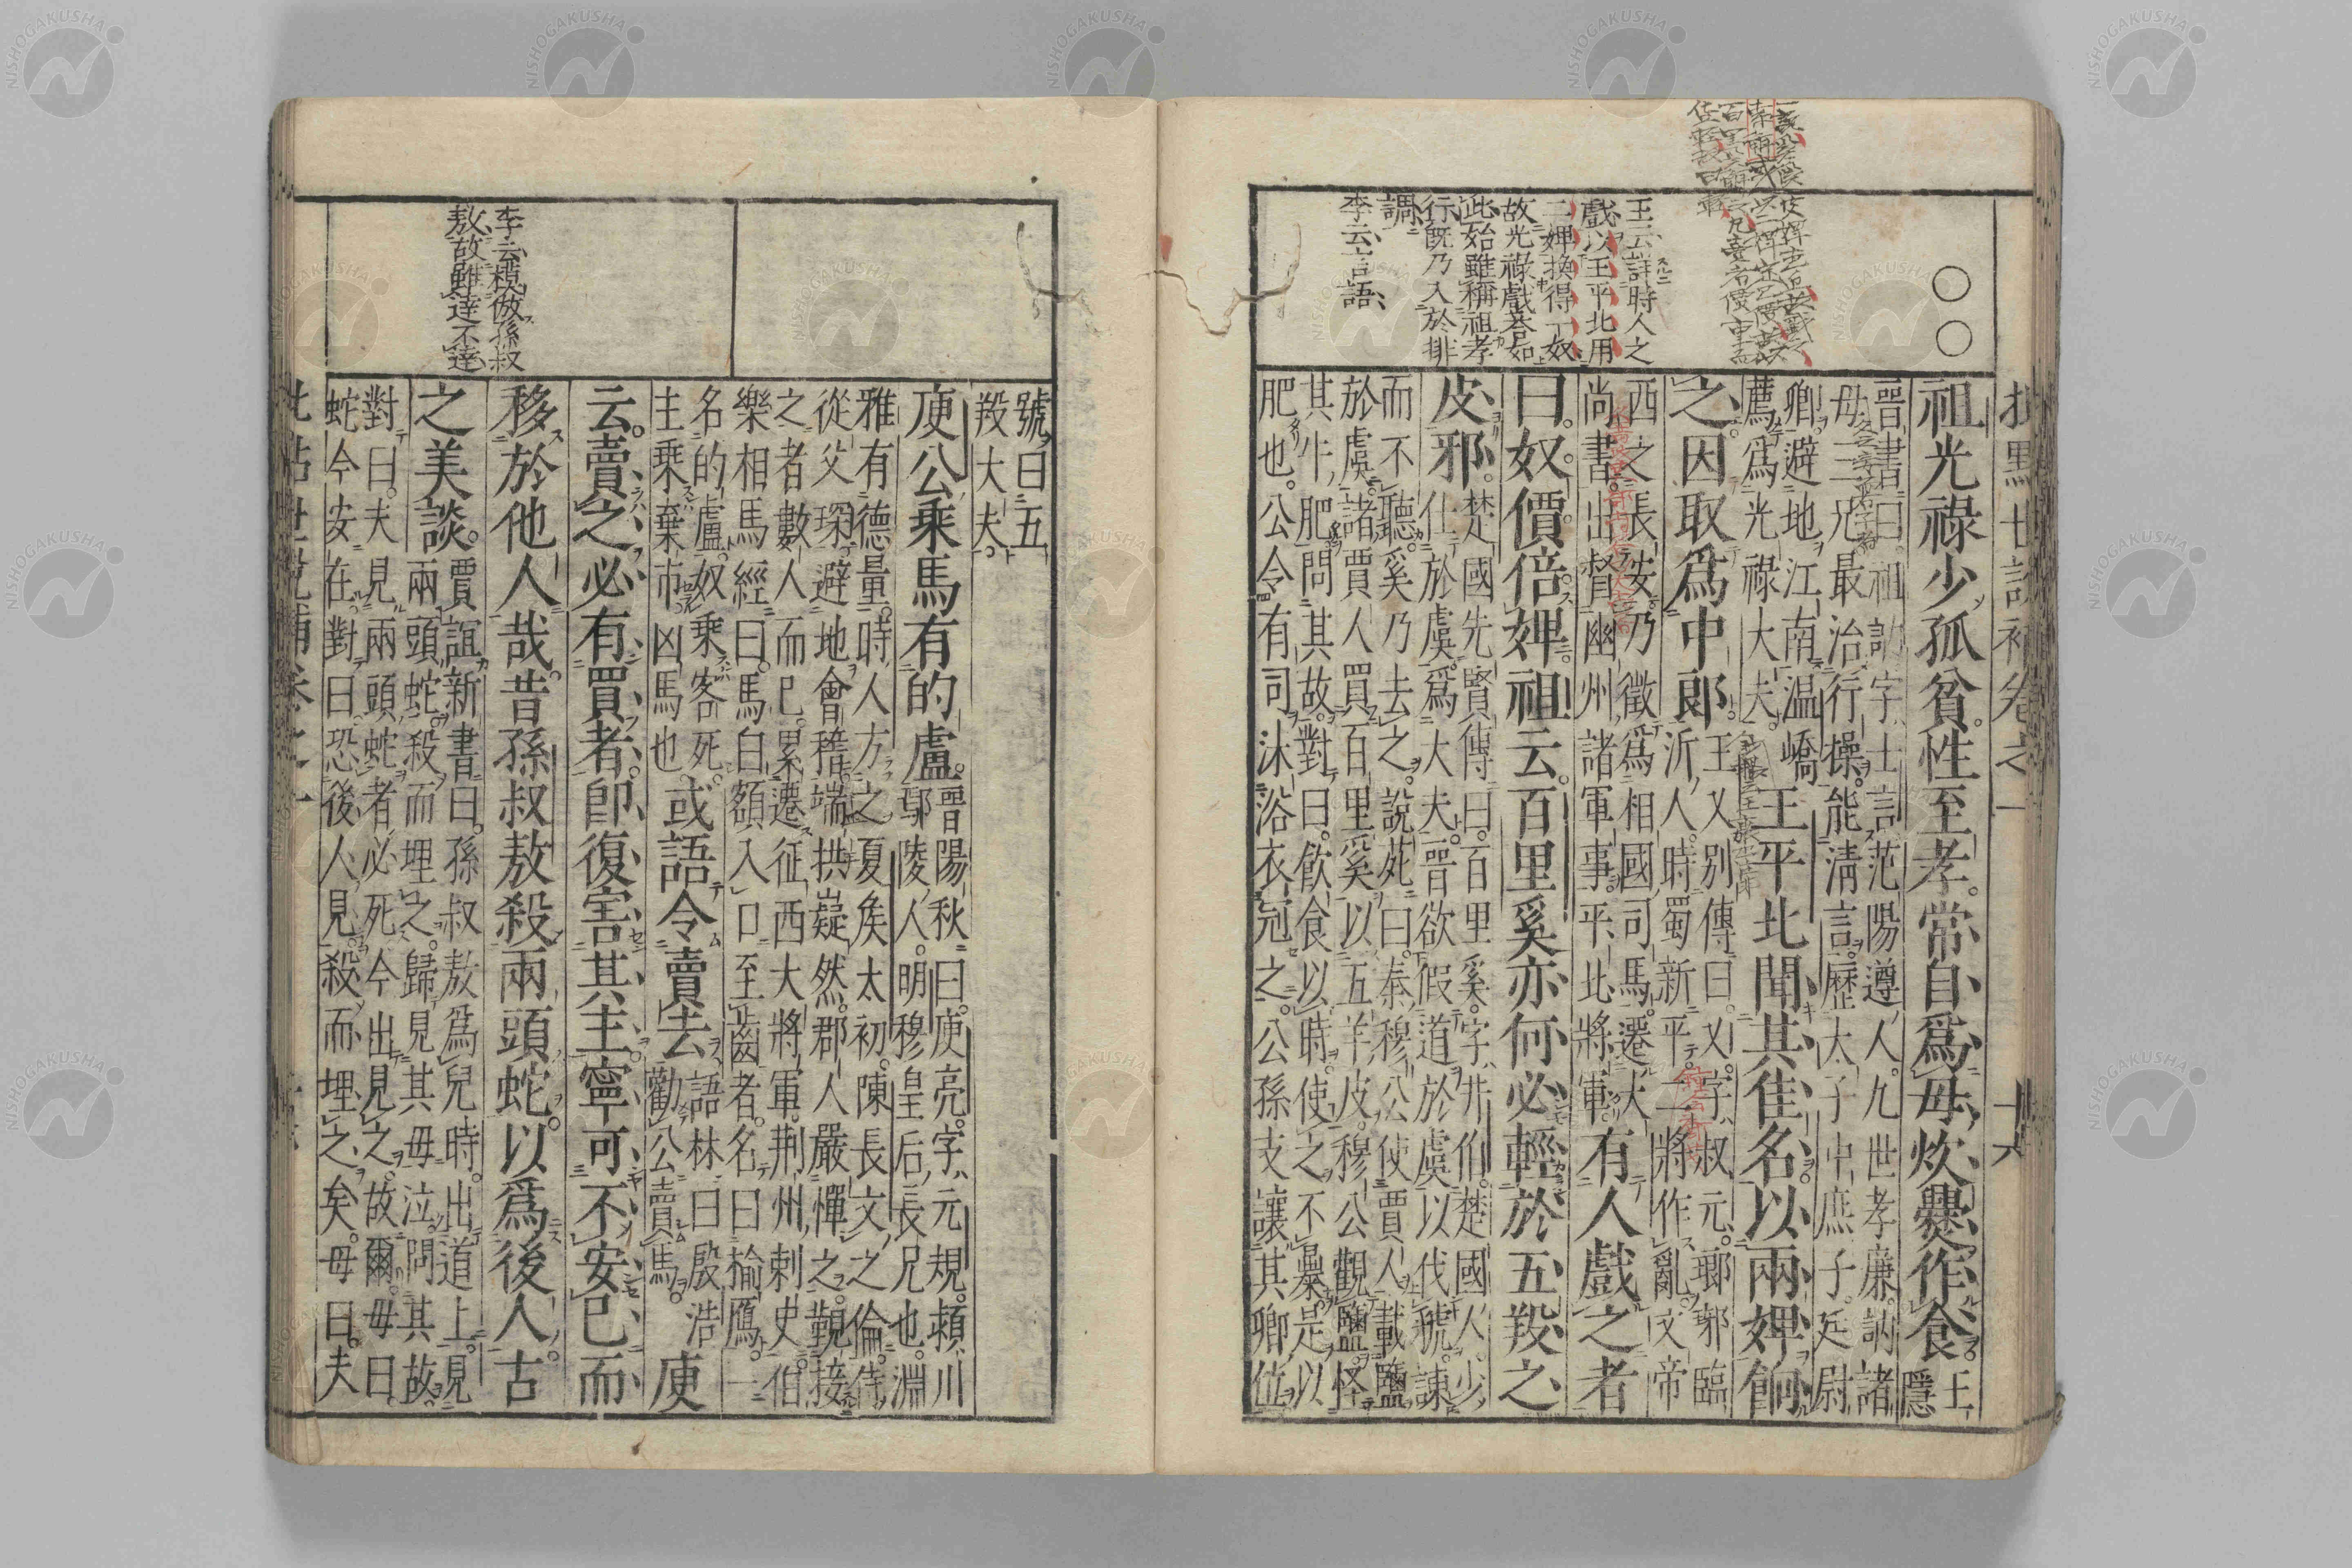 祖光祿少孤貧。性至孝。常自爲母炊爨作食。王
隱
晉書曰。祖訥字士言。范陽遵人。九世孝廉。訥諸
母三兄。最治行操。能淸言。歷太子中庶子。廷尉
卿。避地江南。温嶠
薦爲光祿大夫。
王平北聞其佳名。以兩婢餉
之。因取爲中郎。
王乂別傳曰。乂字叔元。瑯邪臨
沂人。時蜀新平。二將作亂。文帝
西之長安。乃徵爲相國司馬。遷大
尚書。出督幽州諸軍事平北將軍。
有人戲之者
曰。奴價倍婢。祖云。百里奚亦何必輕於五羖之
皮邪。
楚國先賢傳曰。百里奚。字井伯。楚國人。少
仕於虞。爲大夫。晉欲假道於虞以伐虢。諫
而不聽。奚乃去之。說苑曰。秦穆公使賈人載鹽
於虞。諸賈人買百里奚以五羊皮。穆公觀鹽。怪
其牛肥。問其故。對曰。飲食以時。使之不暴。是以
肥也。公令有司沐浴衣冠之。公孫支讓其卿位
○○
王云、詳時人之
戲以王平北用
二婢換得一奴
故光祿戲答如
此始雖稱祖孝
行旣乃入於排
調
李云、言語、
號曰五
羖大夫。
庾公乘馬有的盧。
晉陽秋曰。庾亮。字元規。潁川
鄢陵人。明穆皇后長兄也。淵
雅有德量。時人方之夏矦太初。陳長文之倫。侍
從父琛。避地會稽。端拱嶷然。郡人嚴憚之。覲接
之者數人而已。累遷征西大將軍。荆州刺史。伯
樂相馬經曰。馬白額入口至齒者。名曰榆鴈。一
名的盧。奴乘客死。
主乘棄市。凶馬也。
或語令賣去
語林曰殷浩
勸公賣馬。
庾
云。賣之必有買者。卽復害其主。寧可不安己而
移於他人哉。昔孫叔敖殺兩頭蛇。以爲後人。古
之美談。
賈誼新書曰。孫叔敖爲兒時。出道上。見
兩頭蛇。殺而埋之。歸見其母泣。問其故。
對曰。夫見兩頭蛇者必死。今出見之。故爾。母曰。
蛇今安在。對曰。恐後人見。殺而埋之矣。母曰。夫
李云、模倣孫叔
敖、故雖達不達